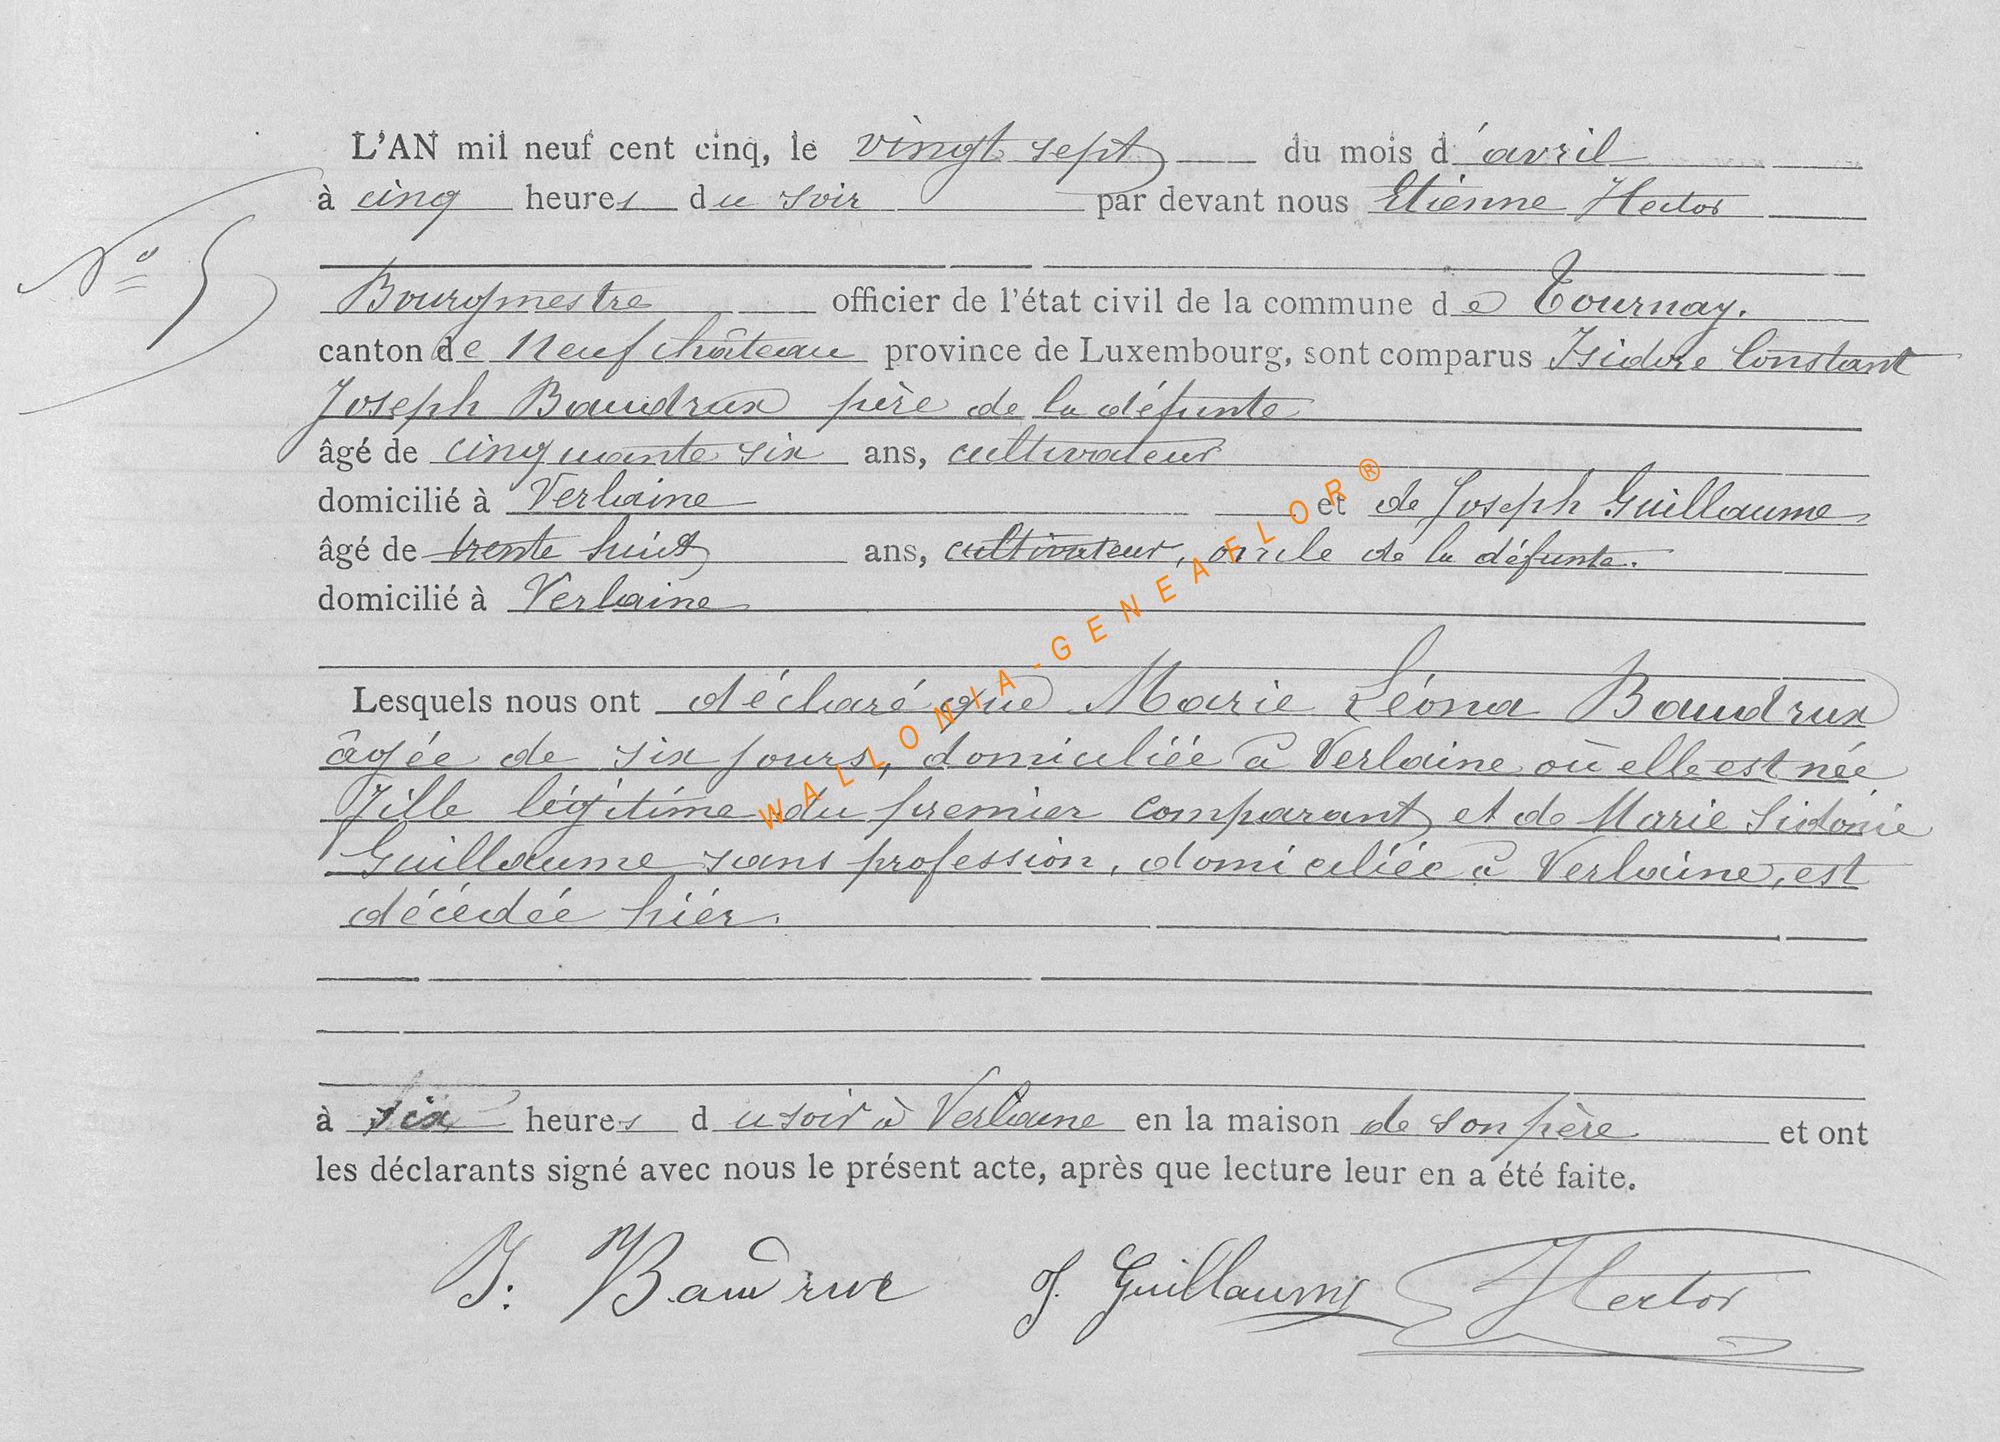 L'AN mil neuf cent cinq, le vingt sept du mois d'avril
à cinq heures du soir par devant nous Etienne Hector
N° 5
Bourgmestre officier de l'état civil de la commune de Tournay.
canton de Neufchâteau province de Luxembourg, sont comparus Isidore Constant
Joseph Baudrux père de la défunte
âgé de cinquante six ans, cultivateur
domicilié à Verlaine et de Joseph Guillaume
âgé de trente huit ans, cultivateur, oncle de la défunte.
domicilié à Verlaine
Lesquels nous ont déclaré que Marie Léona Baudrux
âgée de six jours, domiciliée à Verlaine où elle est née
Fille légitime du premier comparant et de Marie Sidonie
Guillaume sans profession, domiciliée à Verlaine, est
décédée hier.
à six heures du soir à Verlaine en la maison de son père et ont
les déclarants signé avec nous le présent acte, après que lecture leur en a été faite.
J. Baudrux J. Guillaume Hector
WALLONIA-GENEAFLOR®